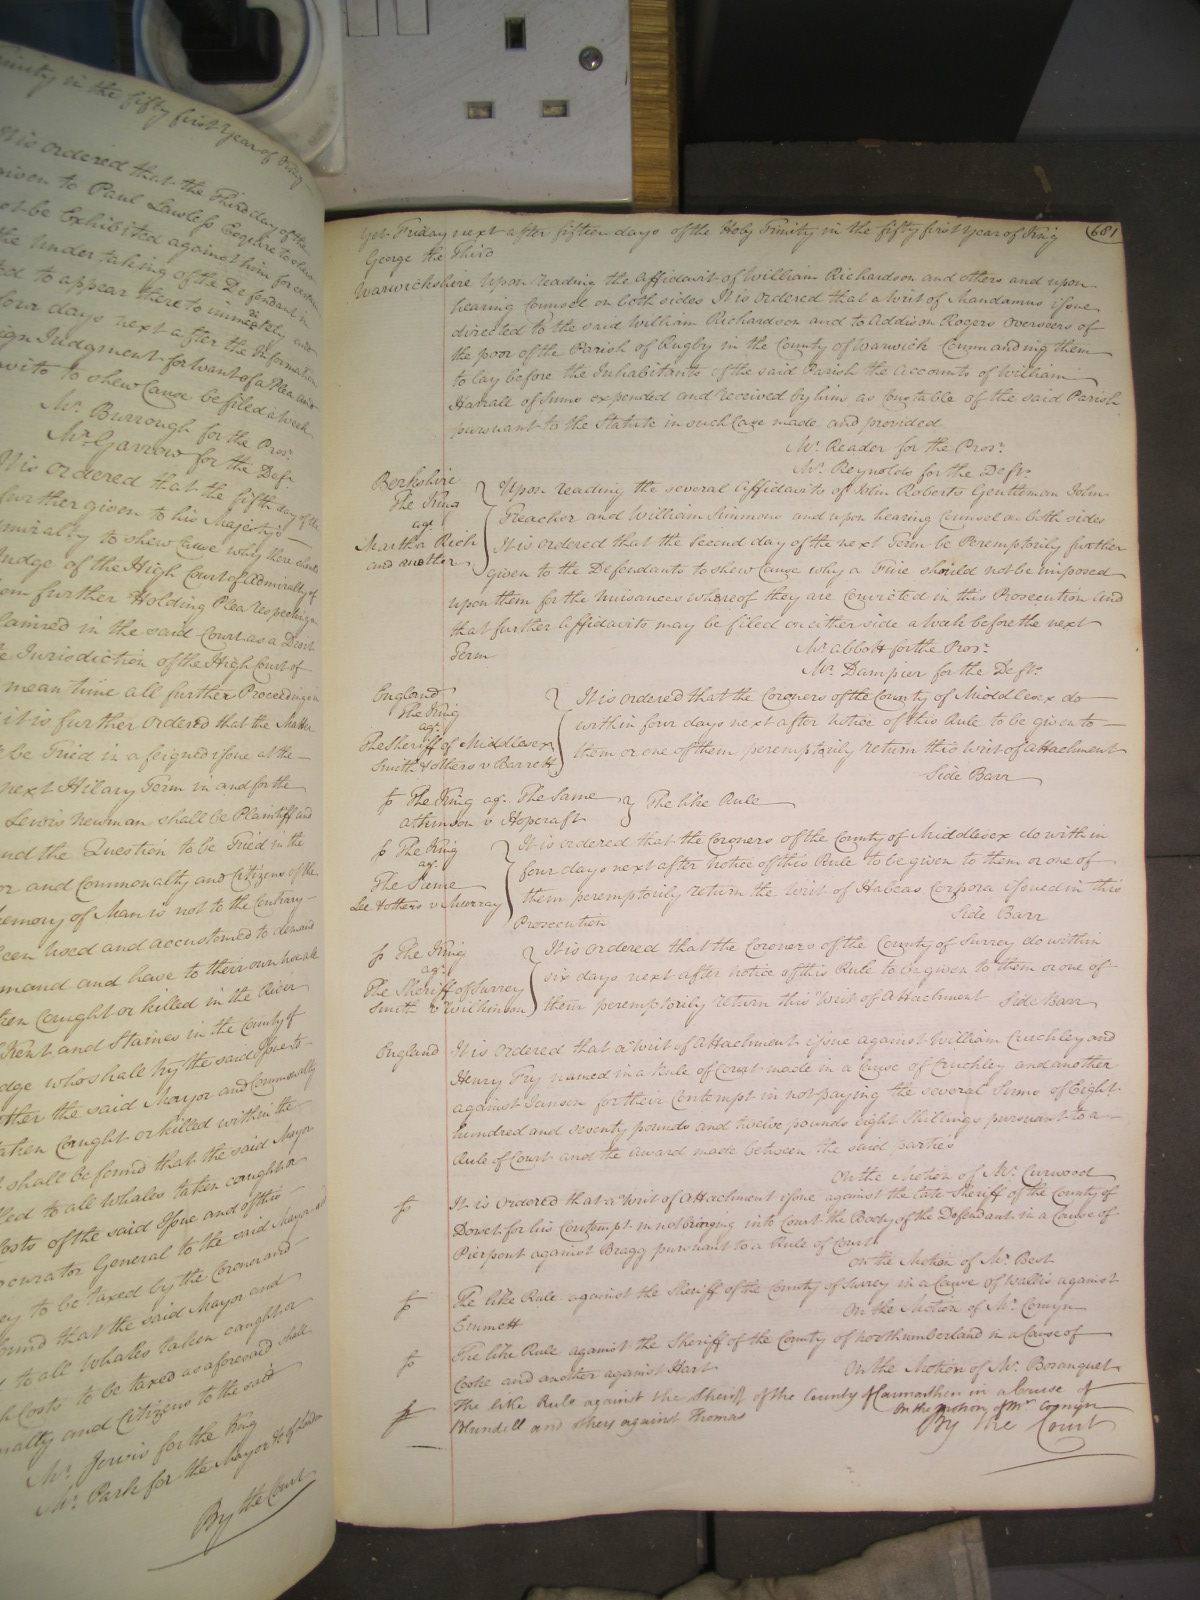 Trinity in the fifty first Year of King
It is ordered that the Third day of the
given to Paul Lawless Esquire to shew
not be Exhibited against him for certain
the undertaking of the Defendant
to appear there to immediately and
four days next after the Information
sign Judgment for want of a Plea and
to shew Cause be filed a Week
Mr. Burrough for the Prosr.
Mr. Garrow for the Deft.
It is ordered that the fifth day of the
further given to his Majestys
Admiralty to shew Cause why there should
Judge of the High Court of Admiralty of
from further Holding Plea respecting
claimed in the said Court as a Droit
Jurisdiction of the High Court of
mean time all further Proceedings
it is further ordered that the Matter
be Tried in a feigned issue at the
next Hilary Term in and for the
Lewis Newman shall be Plaintiff and
and the Question to be Tried in the
or and Commonalty and Citizens of the
Memory of Man is not to the Contrary
been used and accustomed to demand
demand and have to their own
taken Caught or killed in the River
Kent and Staines in the County of
Judge who shall try the said Issue
the said Mayor and Commonalty
taken Caught or killed within the
shall be found that the said Mayor
to all Whales taken caught or
Costs of the said Issue and of this
Procurator General to the said Mayor
to be taxed by the Coroner and
found that the said Mayor and
to all Whales taken caught or
Costs to be taxed as aforesaid shall
Commonalty and Citizens to the said
Mr. Jervis for the King
Mr. Park for the Mayor &c of London
By the Court
681
Yet Friday next after fifteen days of the Holy Trinity in the fifty first Year of King
George the Third
Warwickshire Upon reading the Affidavit of William Richardson and others and upon
hearing Counsel on both sides It is ordered that a Writ of Mandamus issue
directed to the said William Richardson and to Addison Rogers overseers of
the poor of the Parish of Rugby in the County of Warwick Commanding them
to lay before the Inhabitants of the said Parish the Accounts of William
Harrall of Sums expended and received by him as Constable of the said Parish
pursuant to the Statute in such Case made and provided
Mr. Reader for the Prosr.
Mr. Reynolds for the Defts.
Berkshire
The King
agt.
Martha Rich
and another
Upon reading the several Affidavits of John Roberts Gentleman John
Treacher and William Simmons and upon hearing Counsel on both sides
It is ordered that the Second day of the next Term be Peremptorily further
given to the Defendants to shew Cause why a Fine should not be imposed
upon them for the Nuisances whereof they are Convicted in this Prosecution and
that further Affidavits may be filed on either side a Week before the next
Term
Mr. Abbott for the Prosr.
Mr. Dampier for the Defts.
England
The King
agt.
The Sheriff of Middlesex
Smith & others v Barrett
It is ordered that the Coroners of the County of Middlesex do
within four days next after notice of this Rule to be given to
them or one of them peremptorily return this Writ of Attachment
Side Barr
fs The King agt. The Same
Atkinson v Hopcraft
The like Rule
fs The King
agt.
The Same
Lee & others v Murray
It is ordered that the Coroners of the County of Middlesex do within
four days next after Notice of this Rule to be given to them or one of
them peremptorily return the Writ of Habeas Corpora issued in this
Prosecution
Side Barr
fs The King
agt.
The Sheriff of Surrey
Smith v Wilkinson
It is ordered that the Coroners of the County of Surrey do within
six days next after notice of this Rule to be given to them or one of
them peremptorily return this Writ of Attachment Side Barr
England It is Ordered that a Writ of Attachment issue against William Cruchley and
Henry Fry named in a Rule of Court made in a Cause of Cruchley and another
against Jansen for their Contempt in not paying the several Sums of Eight
hundred and seventy pounds and twelve pounds Eight Shillings pursuant to a
Rule of Court and the Award made between the said parties
On the Motion of Mr. Curwood
fs It is Ordered that a Writ of Attachment issue against the late Sheriff of the County of
Dorset for his Contempt in not bringing into Court the Body of the Defendant in a Cause of
Pierpont against Bragg pursuant to a Rule of Court
On the Motion of Mr. Best
fs The like Rule against the Sheriff of the County of Surrey in a Cause of Wallis against
Emmett
On the Motion of Mr. Comyn
fs The like Rule against the Sheriff of the County of Northumberland in a Cause of
Cooke and another against Hart
On the Motion of Mr. Bosanquet
fs The like Rule against the Sheriff of the County of Carmarthen in a Cause of
Blundell and others against Thomas
On the Motion of Mr. Comyn
By the Court